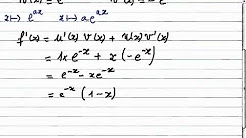 x ↦ e^{ax}   x ↦ a e^{ax}
f'(x) = u'(x) v(x) + u(x) v'(x)
= 1x e^{-x} + x (-e^{-x})
= e^{-x} - xe^{-x}
= e^{-x} (1-x)